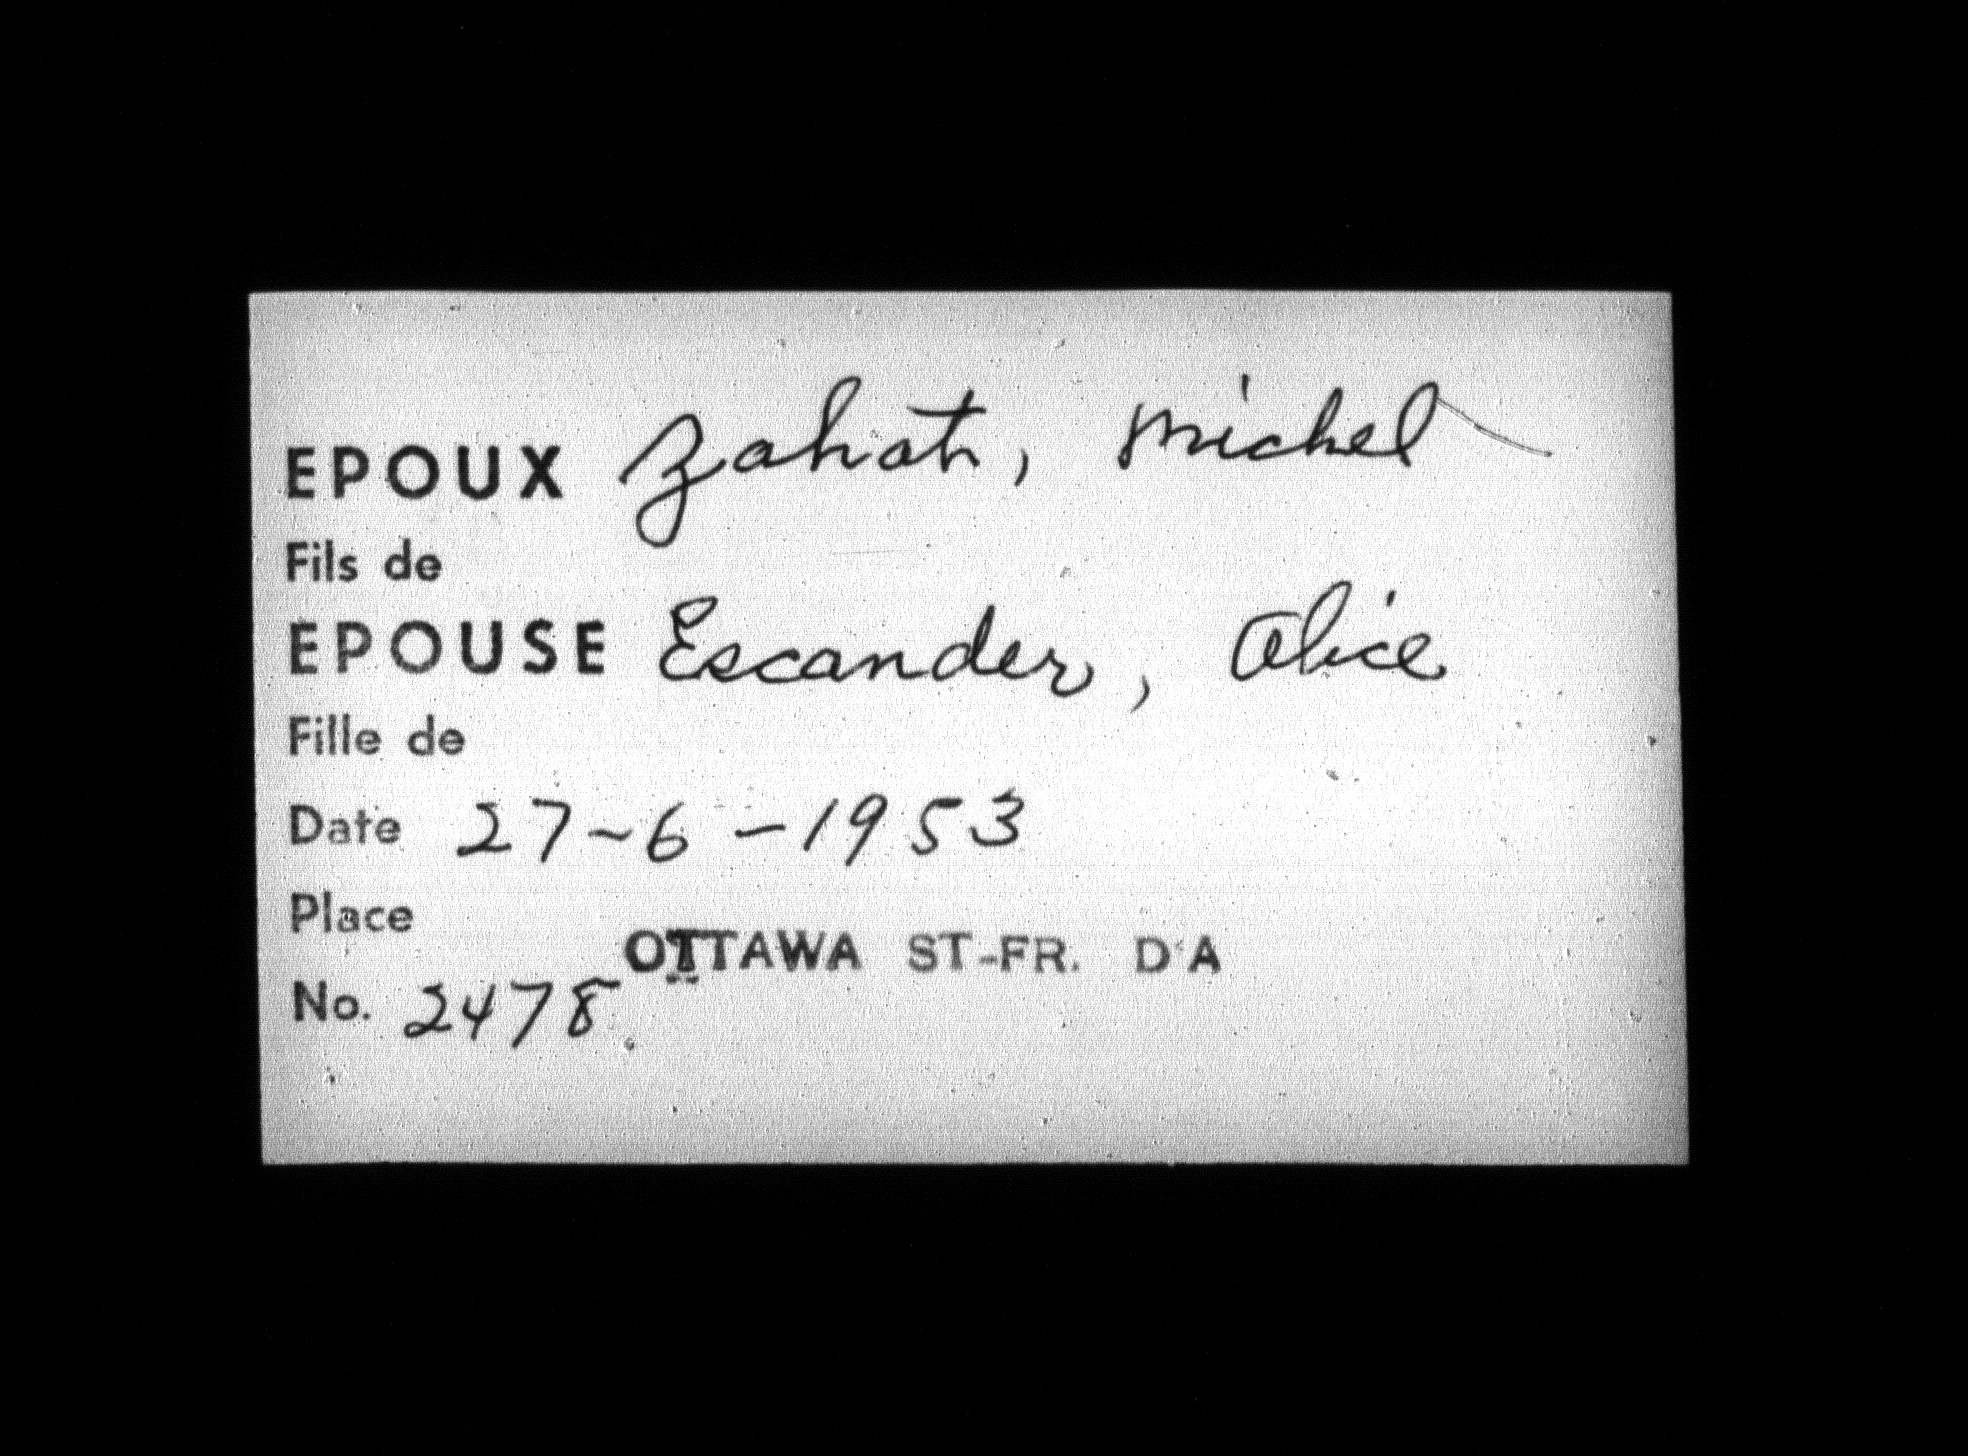 EPOUX Zahat, Michel
Fils de
EPOUSE Escander, Alice
Fille de
Date 27-6-1953
Place OTTAWA ST-FR. D'A
No. 2478